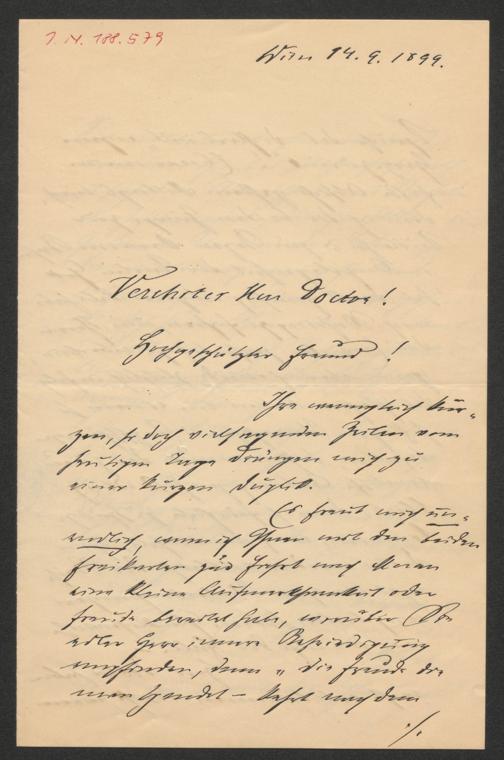 J. N. 188.579
Wien 14. 9. 1899.
Verehrter Herr Doctor!
Hochgeschätzter Freund!
Ihre wenngleich kur-
zen, so doch vielsagenden Zeilen vom
heutigen Tage drängen mich zu
einer kurzen Duplik.
Es freut mich un-
endlich, wenn ich Ihnen mit den beiden
Freikarten zur Fahrt nach Meran
eine kleine Aufmerksamkeit oder
Freude bereitet habe, worüber Sie
edler Herr innere Befriedigung
empfinden, denn „die Freude die
man spendet – kehrt nach dem
./.